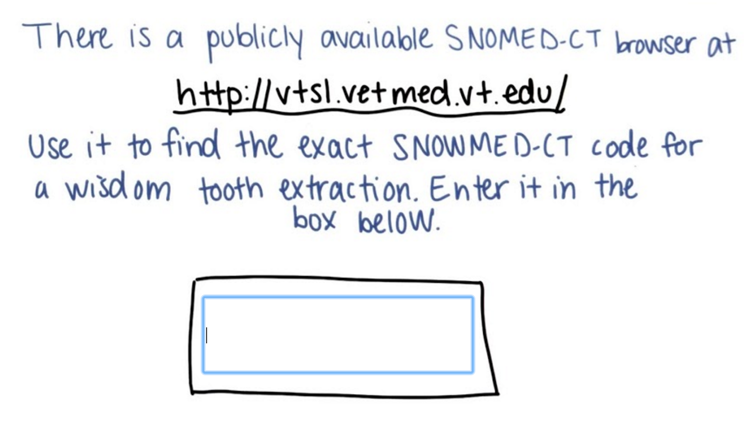 There is a publicly available SNOMED-CT browser at
http://vtsl.vetmed.vt.edu/
Use it to find the exact SNOWMED-CT code for
a wisdom tooth extraction. Enter it in the
box below.